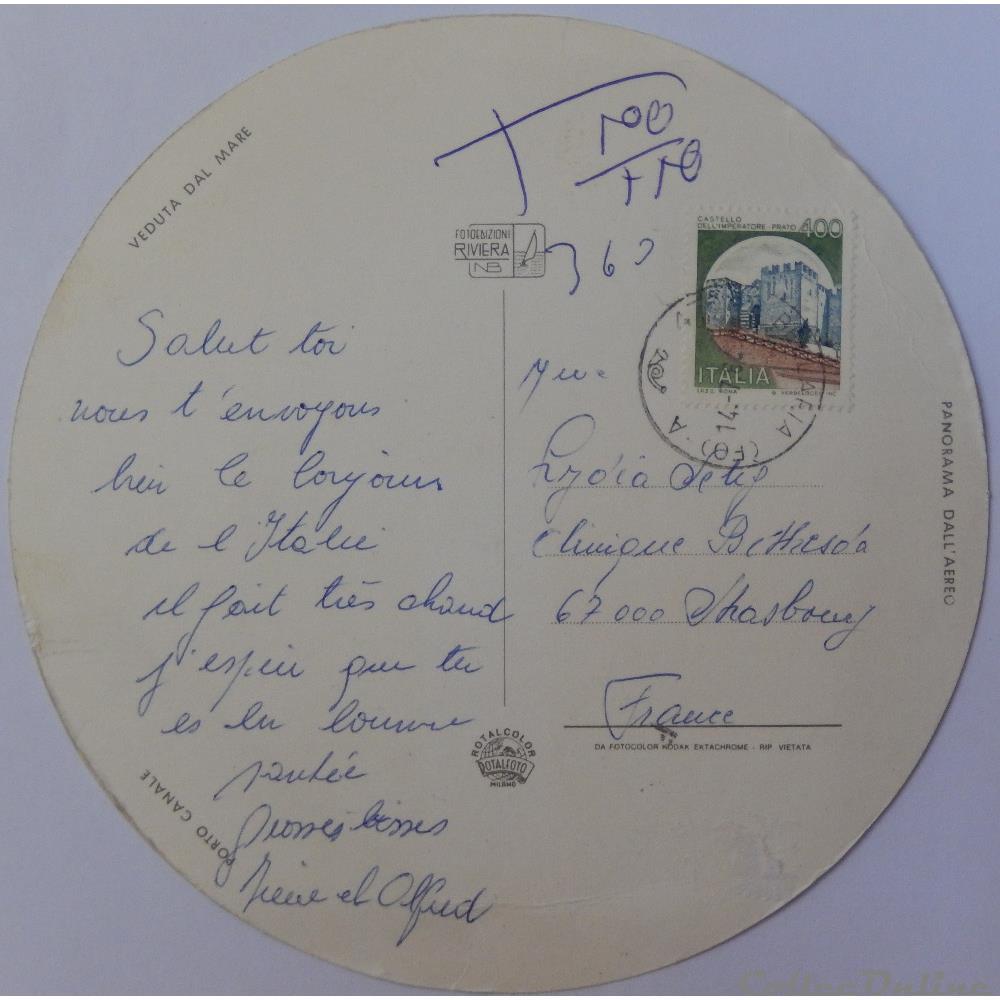 VEDUTA DAL MARE
T 100
110
360
FOTOEDIZIONI
RIVIERA
NB
CASTELLO
DELL'IMPERATORE - PRATO 400
ITALIA
I.P.Z.S. ROMA
(FG)
14
A
Salut toi
nous t'envoyons
bien le bonjour
de l Italie
il fait très chaud
j'espère que tu
es en bonne
santée
Grosses bisses
et Alfred
Mme
Lydia
Clinique Bethesda
67000 Strasbourg
France
DA FOTOCOLOR KODAK EKTACHROME - RIP. VIETATA
ROTALCOLOR
ROTALFOTO
MILANO
PANORAMA DALL'AEREO
PORTO CANALE